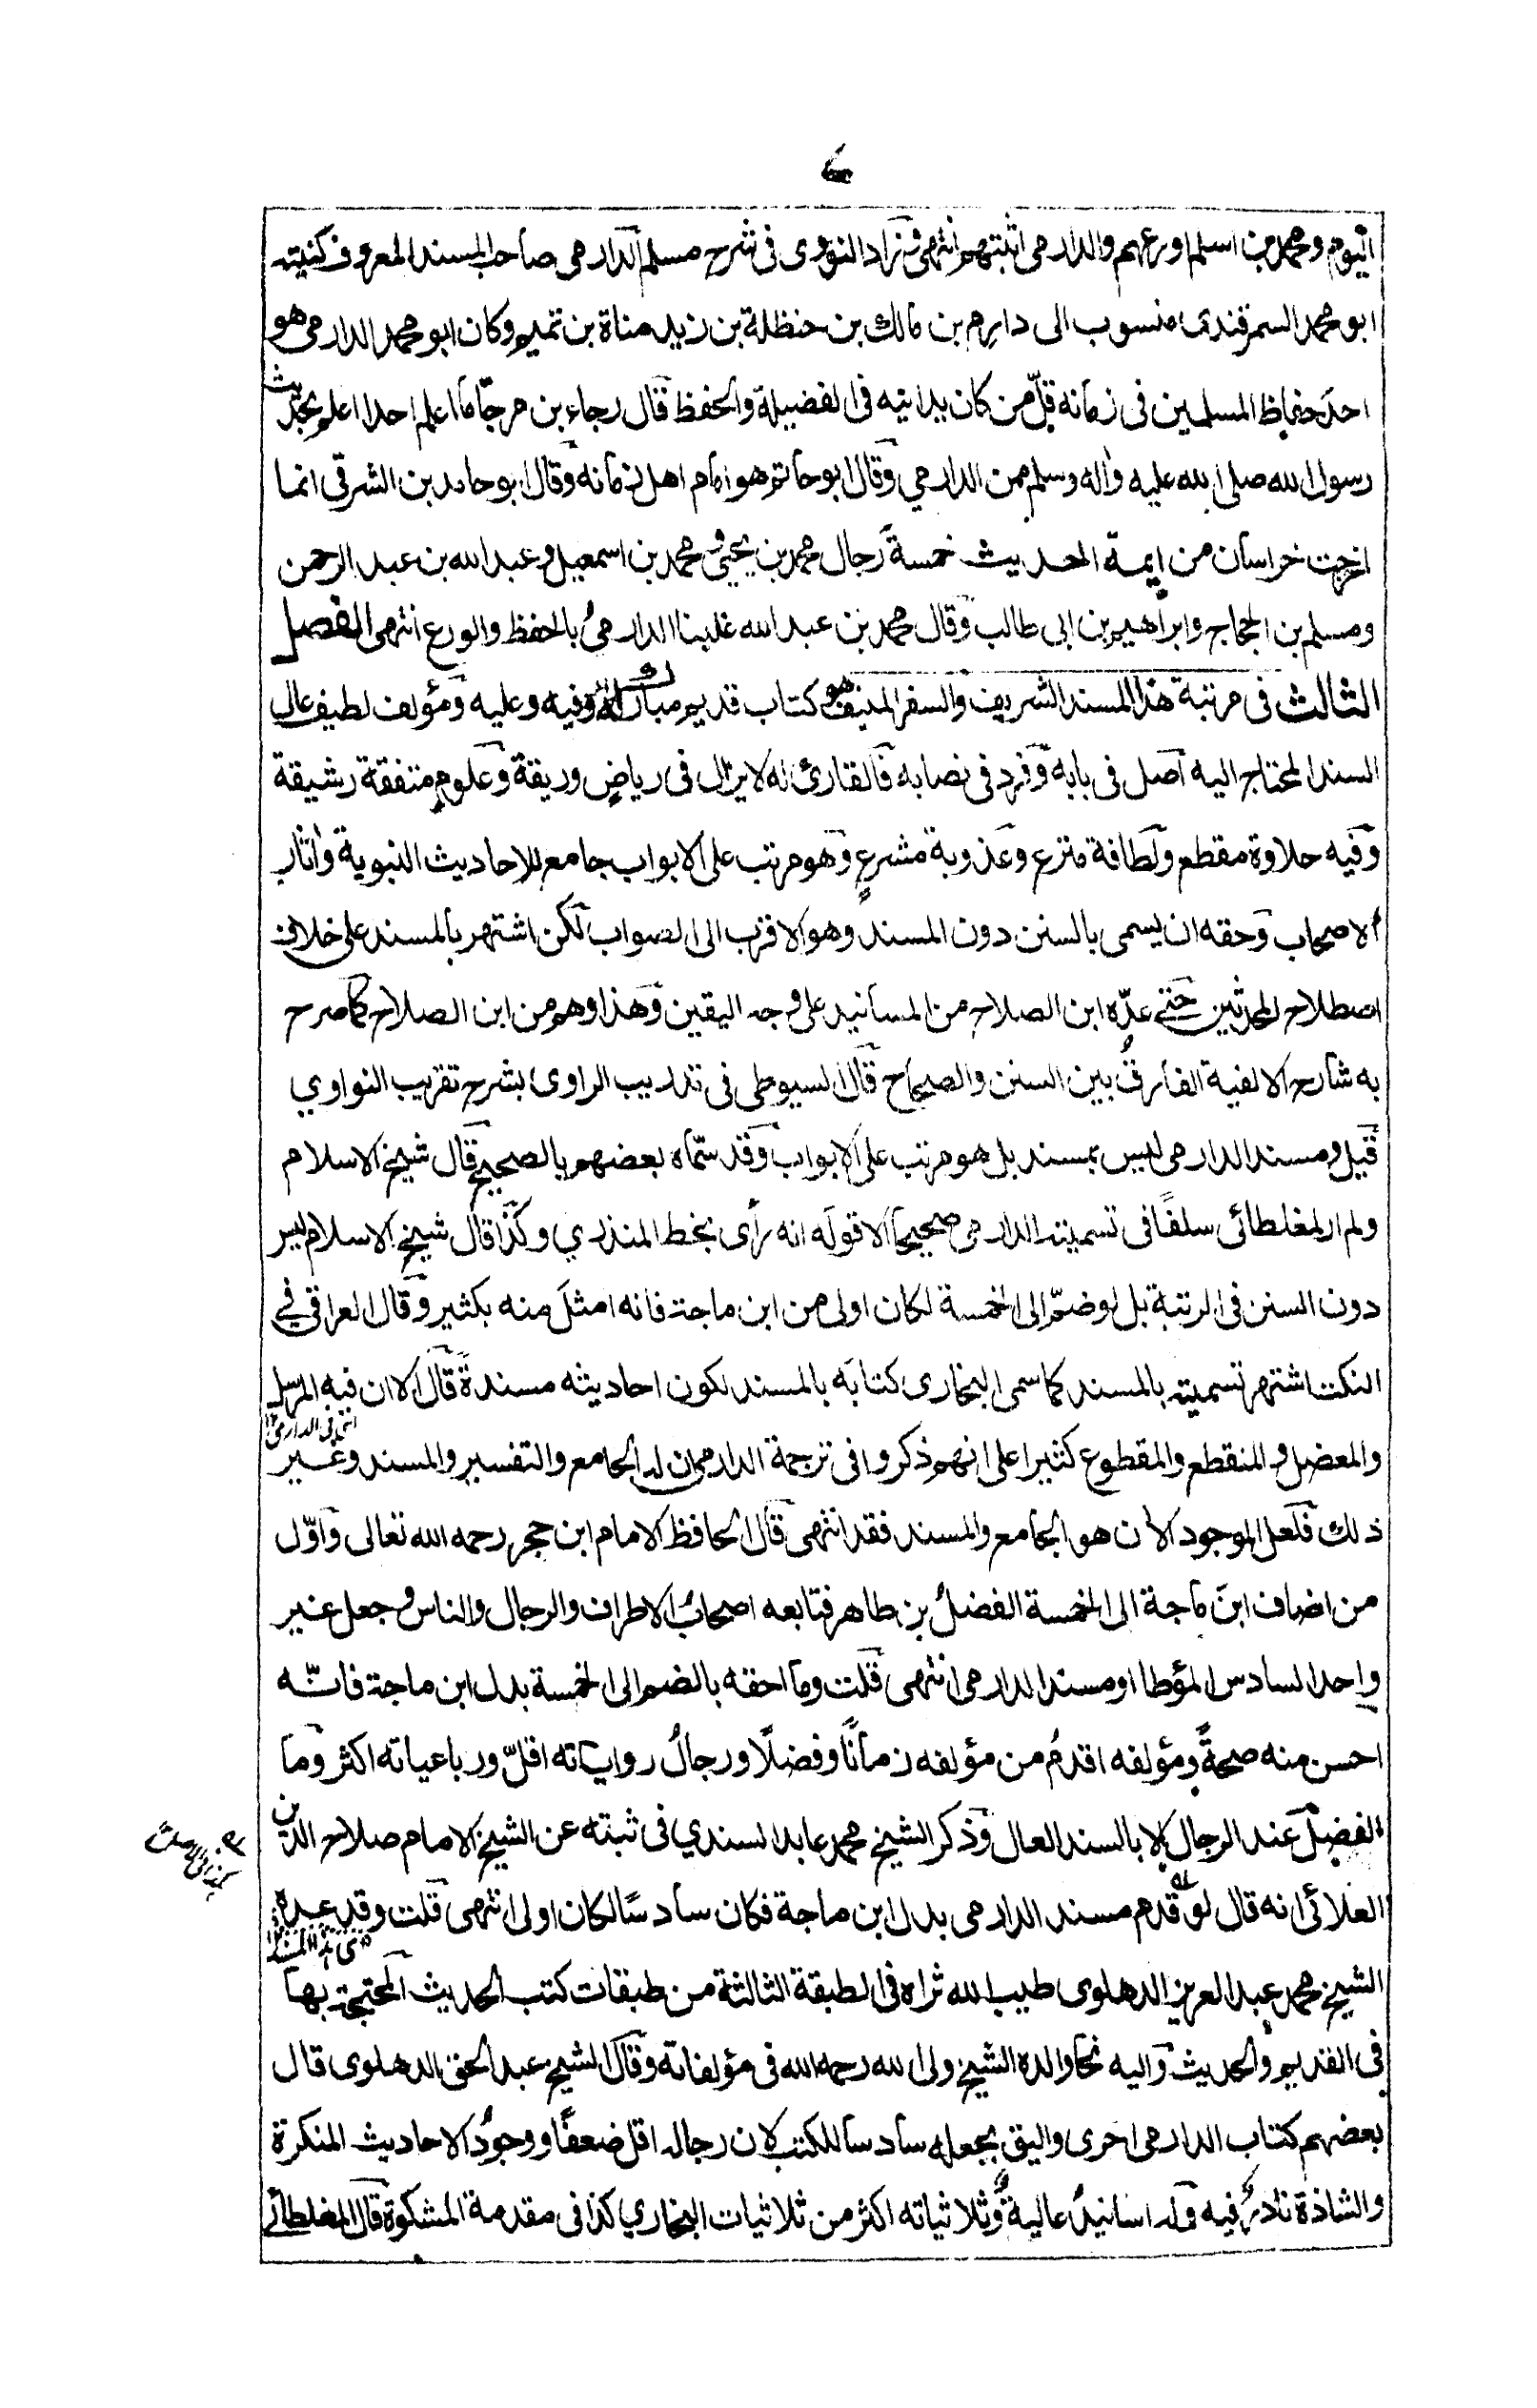 اليوم ومحمد بن اسلم اورعهم والدارمي اثبتهم انتهى وزاد النووى فى شرح مسلم الدارمى صاحب المسند المعروف كنيته
ابو محمد السمرقندى منسوب الى دارم بن مالك بن حنظلة بن زيد مناة بن تميم وكان ابو محمد الدارمى هو
احد حفاظ المسلمين فى زمانه قلّ من كان يدانيه فى الفضيلة والحفظ قال رجاء بن مرجّا ما اعلم احدا اعلم بحديث
رسول الله صلى الله عليه واله وسلم من الدارمي وقال ابو حاتم هو امام اهل زمانه وقال ابو حامد بن الشرقى انما
اخرجت خراسان من ايمة الحديث خمسة رجال محمد بن يحيى و محمد بن اسمعيل و عبد الله بن عبد الرحمن
ومسلم بن الحجاج وابراهيم بن ابى طالب وقال محمد بن عبد الله غلبنا الدارمىُ بالحفظ والورع انتهى الفصل
الثالث فى مرتبة هذا المسند الشريف والسفر المنيف هو كتاب قديم مبارك له وفيه وعليه ومؤلف لطيف عالى
السند المحتاج اليه اصل فى بابه وفرد فى نصابه فالقارئ له لا يزال فى رياضٍ وريقة وعلومٍ متفقة رشيقة
وفيه حلاوة مقطع ولطافة منزع وعذوبة مشرعٍ وهو مرتب على الابواب جامع للاحاديث النبوية واثار
الاصحاب وحقه ان يسمى بالسنن دون المسند وهو الاقرب الى الصواب لكن اشتهر بالمسند على خلاف
اصطلاح المحدثين حتى عدّه ابن الصلاح من المسانيد على وجه اليقين وهذا وهم من ابن الصلاح كما صرح
به شارح الالفية الفارقُ بين السنن والصحاح قال السيوطى فى تدريب الراوى بشرح تقريب النواوي
قيل ومسند الدارمى ليس بمسند بل هو مرتب على الابواب وقد سمّاه بعضهم بالصحيح قال شيخ الاسلام
ولم ار لمغلطائى سلفًا فى تسميته الدارمى صحيحا الا قوله انه رأى بخط المنذري وكذا قال شيخ الاسلام ليس
دون السنن فى الرتبة بل لو ضمّ الى الخمسة لكان اولى من ابن ماجة فانه امثل منه بكثير وقال العراقى فى
النكت اشتهر تسميته بالمسند كما سمى البخارى كتابه بالمسند لكون احاديثه مسندةً قال الا ان فيه المرسل
والمعضل و المنقطع والمقطوع كثيرا على انهم ذكروا فى ترجمة الدارمى ان له الجامع والتفسير والمسند وغير
ذلك فلعل الموجود الأن هو الجامع والمسند فقد انتهى قال الحافظ الامام ابن حجر رحمه الله تعالى واوّل
من اضاف ابن ماجة الى الخمسة الفضلُ بن طاهر فتابعه اصحابُ الاطراف والرجال والناس و جعل غير
واحد السادس المؤطا او مسند الدارمى انتهى قلت وما احقه بالضم الى الخمسة بدل ابن ماجة فانّه
احسن منه صحةً ومؤلفه اقدمُ من مؤلفه زمانًا وفضلًا ورجالُ رواياته اقلّ ورباعياته اكثر وما
الفضل عند الرجال الا بالسند العال وذكر الشيخ محمد عابد السندي فى ثبته عن الشيخ الامام صلاح الدين
العلائى انه قال لو قدم مسند الدارمى بدل ابن ماجة فكان سادسًا لكان اولى انتهى قلت وقد عده
الشيخ محمد عبد العزيز الدهلوى طيب الله ثراه فى الطبقة الثالثة من طبقات كتب الحديث المحتج بها
فى القديم والحديث واليه نحا والده الشيخ ولى الله رحمه الله فى مؤلفاته وقال الشيخ عبد الحق الدهلوى قال
بعضهم كتاب الدارمى احرى واليق بجعله سادسا للكتب لان رجاله اقل ضعفًا ووجودُ الاحاديث المنكرة
والشاذة نادرٌ فيه وله اسانيدُ عاليةٌ وثلاثياته اكثر من ثلاثيات البخاري كذا فى مقدمة المشكوة قال المغلطائى